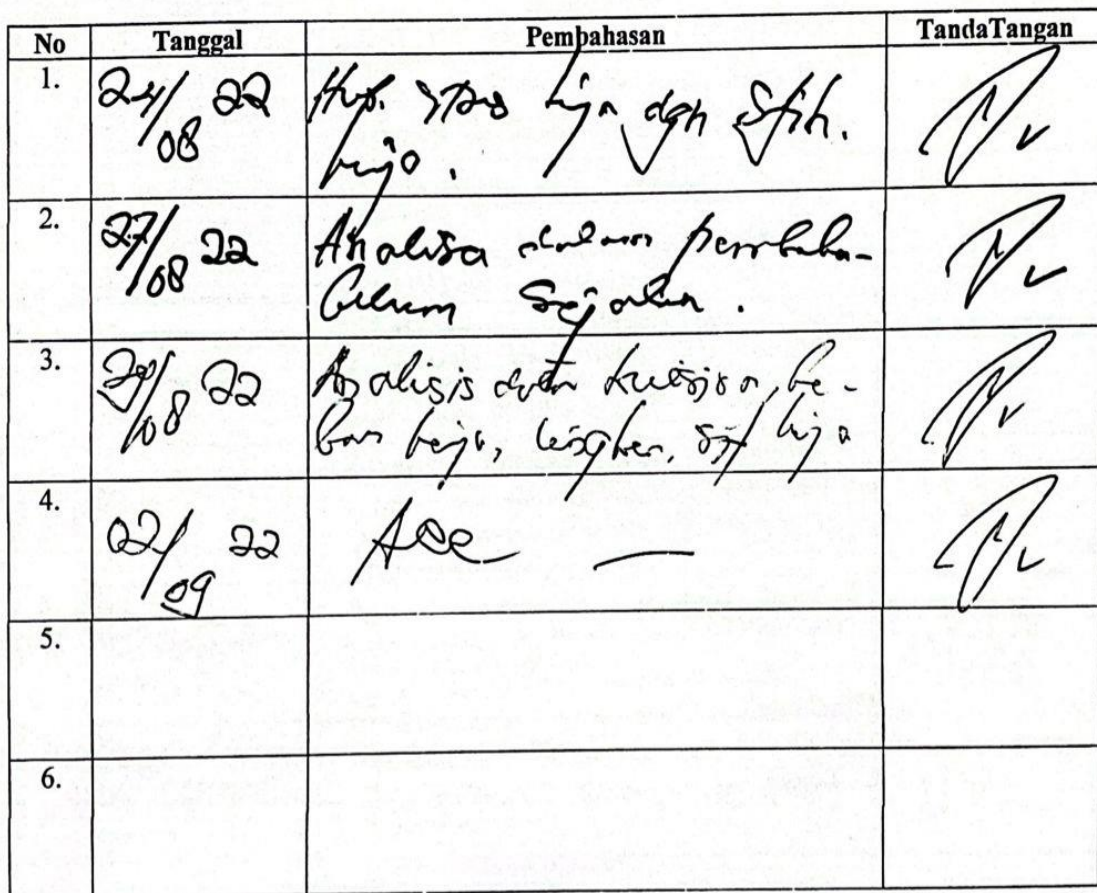 No Tanggal Pembahasan TandaTangan
1. 24/08 22 Hub. stres kerja dgn
kerja.
2. 27/08 22 Analisa dalam pembaha-
belum sejalan.
3. 08 22 Analisis data be-
ban kerja, kerja
4. 02/09 22 Acc
5.
6.